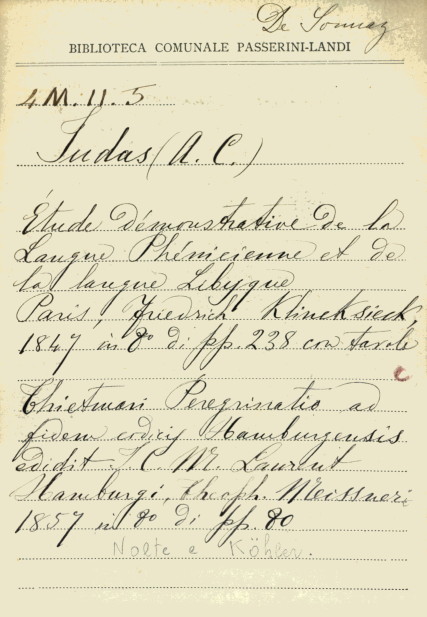 De Sonnaz
BIBLIOTECA COMUNALE PASSERINI-LANDI
4 M. 11. 5
Judas (A. C.)
Étude démonstrative de la
Langue Phénicienne et de
la langue Libyque
Paris, Friedrich Klincksieck,
1847 in 8º di pp. 238 con tavole
Thietmari Peregrinatio ad
fidem codicis Hamburgensis
edidit J. C. M. Laurent
Hamburgi, Theoph. Meissneri
1857 in 8º di pp. 80
Nolte e Köhler.